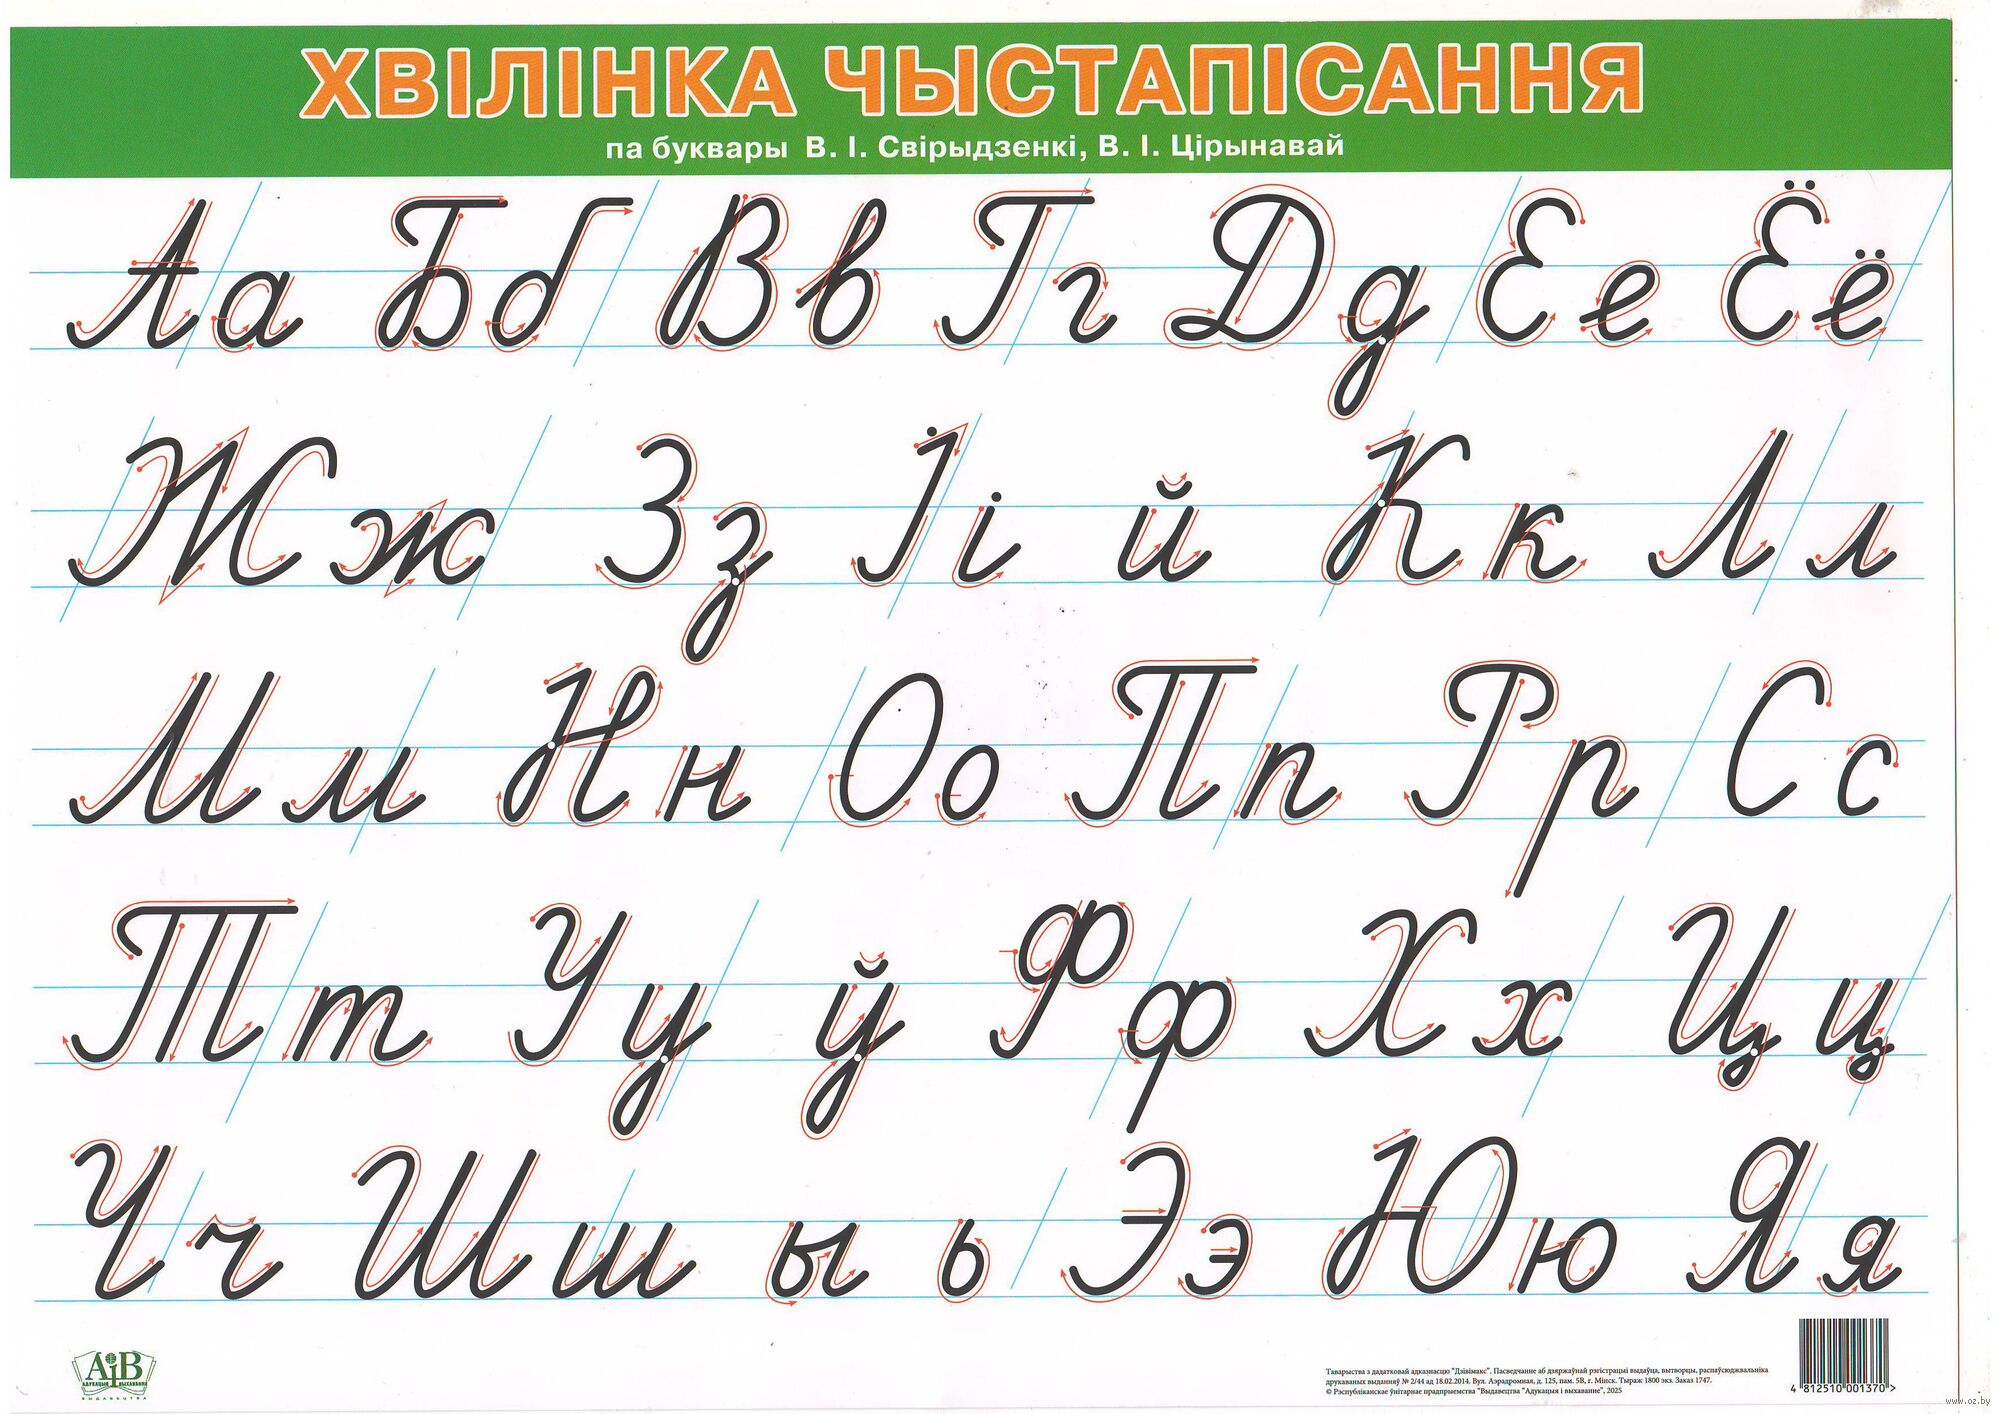 ХВІЛІНКА ЧЫСТАПІСАННЯ
па буквары В. І. Свірыдзенкі, В. І. Цірынавай
Аа Бб Вв Гг Дд Ее Ёё
Жж Зз Іі й Кк Лл
Мм Нн Оо Пп Рр Сс
Тт Уу ў Фф Хх Цц
Чч Шш ы ь Ээ Юю Яя
АіВ
АДУКАЦЫЯ І ВЫХАВАННЕ
ВЫДАВЕЦТВА
Таварыства з дадатковай адказнасцю "Дзівімакс". Пасведчанне аб дзяржаўнай рэгістрацыі выдаўца, вытворцы, распаўсюджвальніка
друкаваных выданняў № 2/44 ад 18.02.2014. Вул. Аэрадромная, д. 125, пам. 5В, г. Мінск. Тыраж 1800 экз. Заказ 1747.
© Рэспубліканскае ўнітарнае прадпрыемства "Выдавецтва "Адукацыя і выхаванне", 2025
4 812510 001370 >
www.oz.by